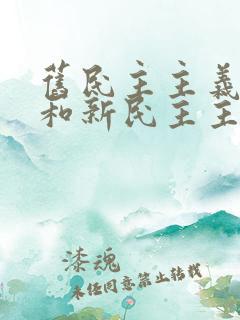 舊民主主義
和新民主主
漆魂
未經同意禁止轉載